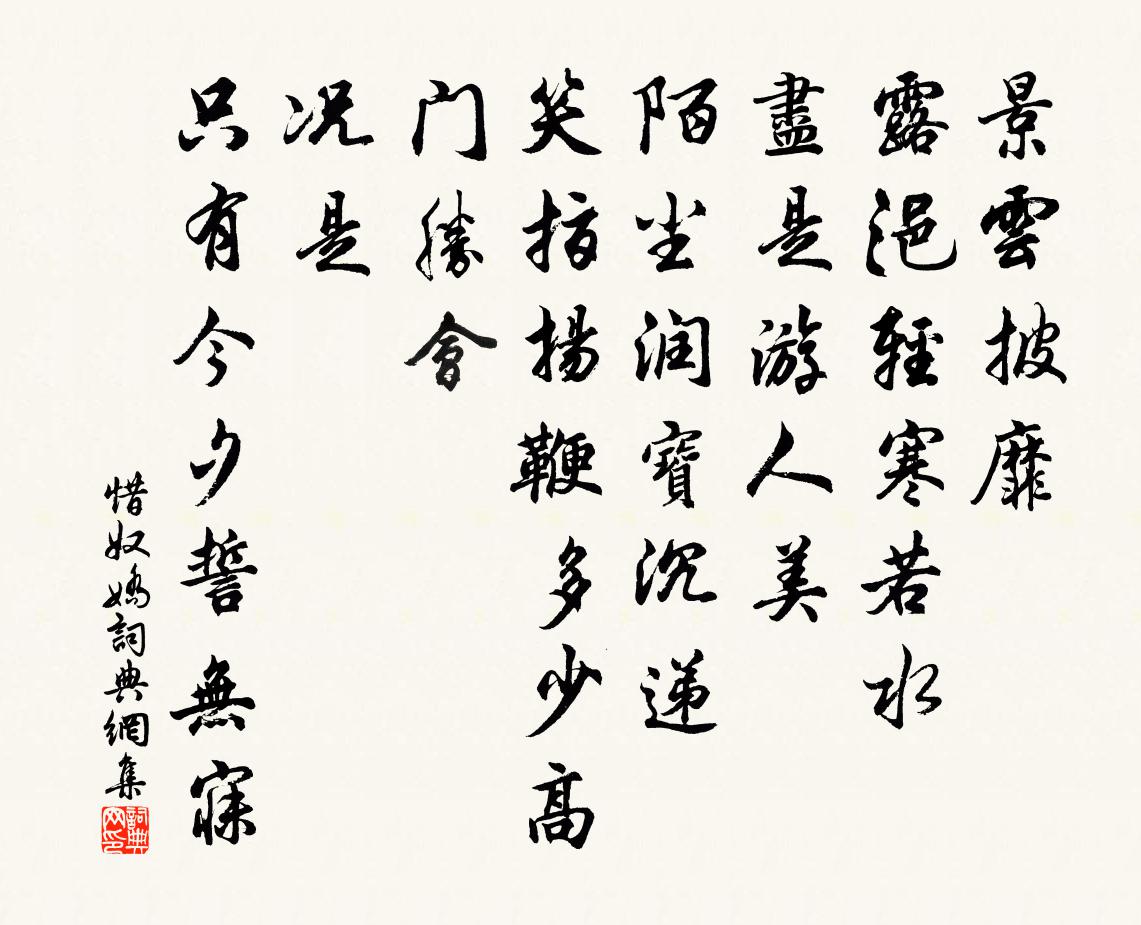 景雲披靡
露浥輕寒若水
盡是游人美
陌尘润寶沉递
笑指揚鞭多少高
门勝會
况是
只有今夕誓無寐
惜奴嬌詞典網集
詞典网印